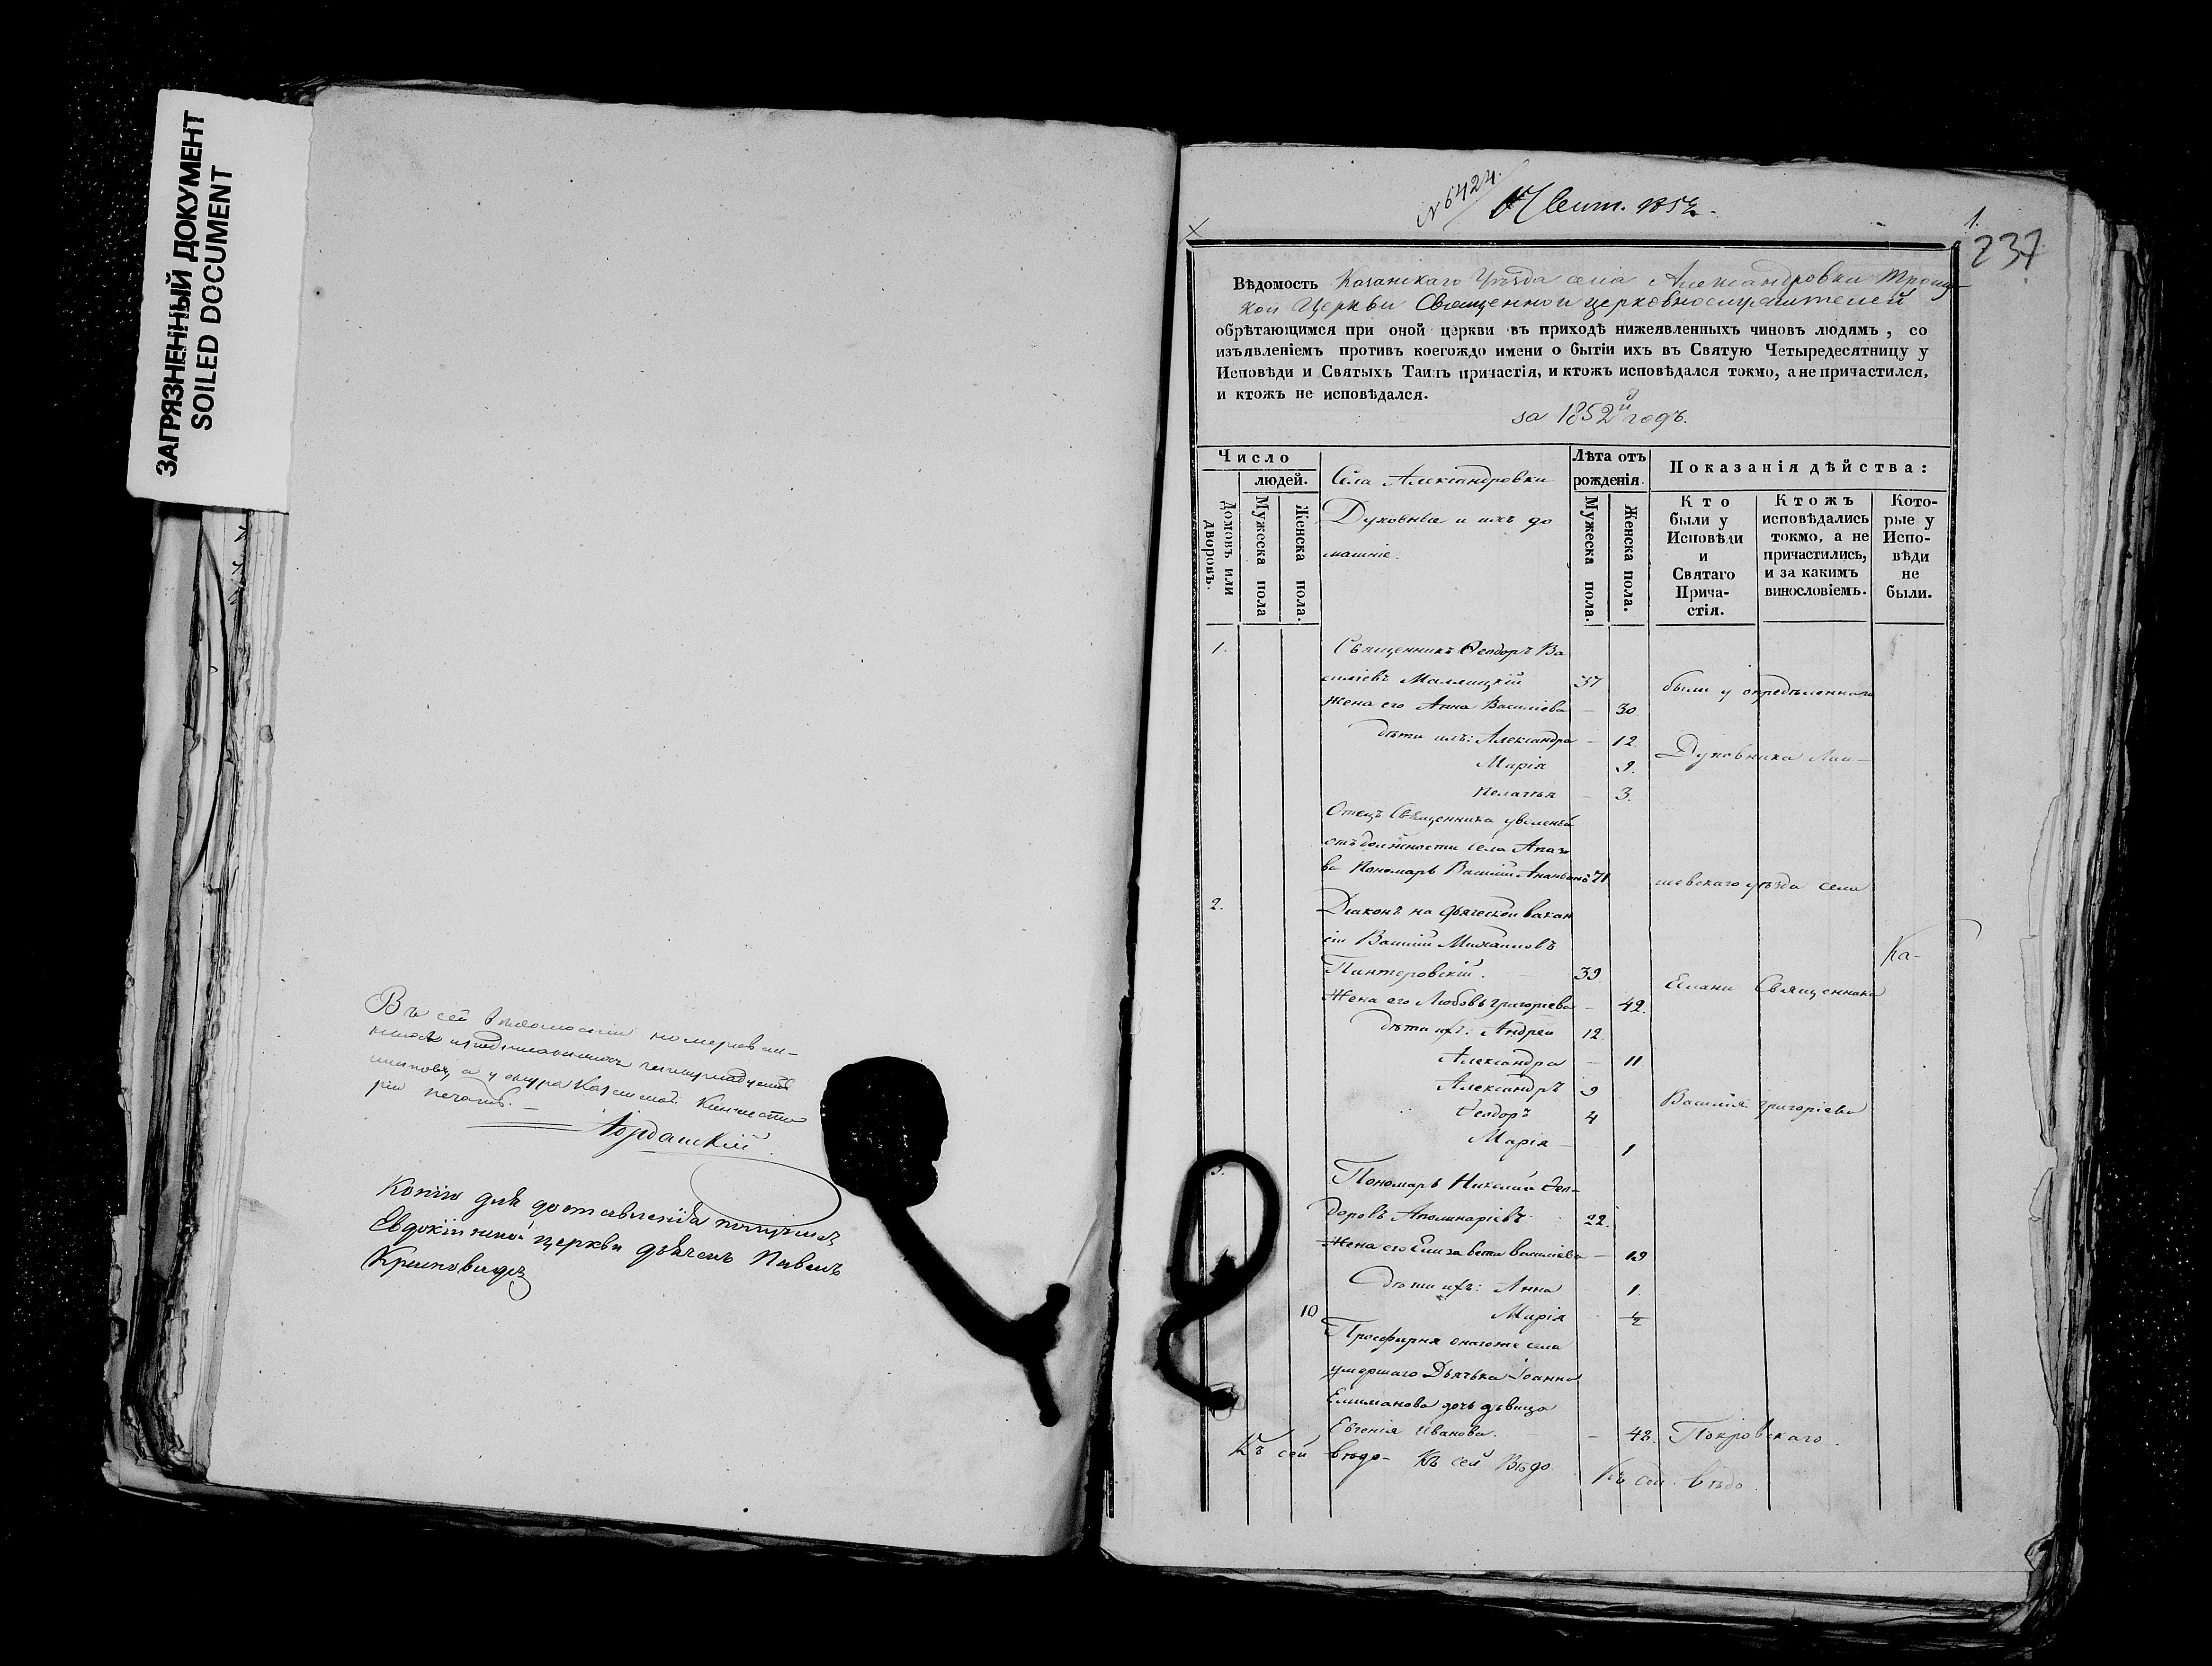 ЗАГРЯЗНЕННЫЙ ДОКУМЕНТ
SOILED DOCUMENT
Въ сей ведомости
печать.
Іорданскій
Копію для доставленія получилъ
Евдокіинской церкви дьяконъ Павелъ
№ 6424.
17 Сент. 1852.
1.
237
Вѣдомость Казанскаго Уѣзда села Александровки Троиц-
кой Церкви Священно и церковнослужителей
обрѣтающимся при оной церкви въ приходѣ нижеявленныхъ чиновъ людямъ, со
изъявленіемъ противъ коегождо имени о бытіи ихъ въ Святую Четыредесятницу у
Исповѣди и Святыхъ Таинъ причастія, и ктожъ исповѣдался токмо, а не причастился,
и ктожъ не исповѣдался.
за 1852й годъ.
Число
людей.
Домовъ или дворовъ.
Мужеска пола
Женска пола.
Села Александровки
Духовные и ихъ до
машніе.
Лѣта отъ
рожденія.
Мужеска пола.
Женска пола.
Показанія дѣйства:
Кто
были у
Исповѣди
и
Святаго
Прича-
стія.
Ктожъ
исповѣдались
токмо, а не
причастились,
и за какимъ
винословіемъ.
Кото-
рые у
Испо-
вѣди
не
были.
1. Священникъ Ѳеодоръ Ва
силіевъ Малицкій 37 были у опредѣленнаго
Жена его Анна Василіева – 30
дѣти ихъ: Александра – 12. Духовника Лаи-
Марія 9.
Пелагія – 3.
Отецъ Священника уволеный
отъ должности села Апазо
ва Пономарь Василій Ананьевъ 71 шевскаго уѣзда села
2. Діаконъ на дьяческой вакан
сіи Василій Михайловъ Ка-
Пантеровскій. 39 Елани Священника
Жена его Любовь Григорьева – 42.
дѣти ихъ: Андрей 12
Александра – 11
Александръ 9 Василія Григоріева
Ѳеодоръ 4
Марія – 1
3. Пономарь Николай Ѳео-
доровъ Аполинаріевъ 22.
Жена его Елизавета Василіева – 19
дѣти ихъ: Анна 1.
10 Марія ½
Просфирня онагоже села
умершаго Дьячька Іоанна
дочь дѣвица
Евгенія Иванова. – 48. Покровскаго.
Къ сей вѣдо- Къ сей Вѣдо Къ сей вѣдо